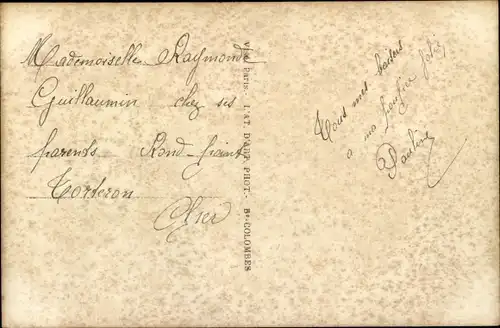 Mademoiselle Raymonde
Guillaumin chez ses
parents Rond-point
Torteron
Cher
Vise Paris. - L'AT. D'ART. PHOT. - Bs-COLOMBES
Tous mes baisers
a ma
Pauline